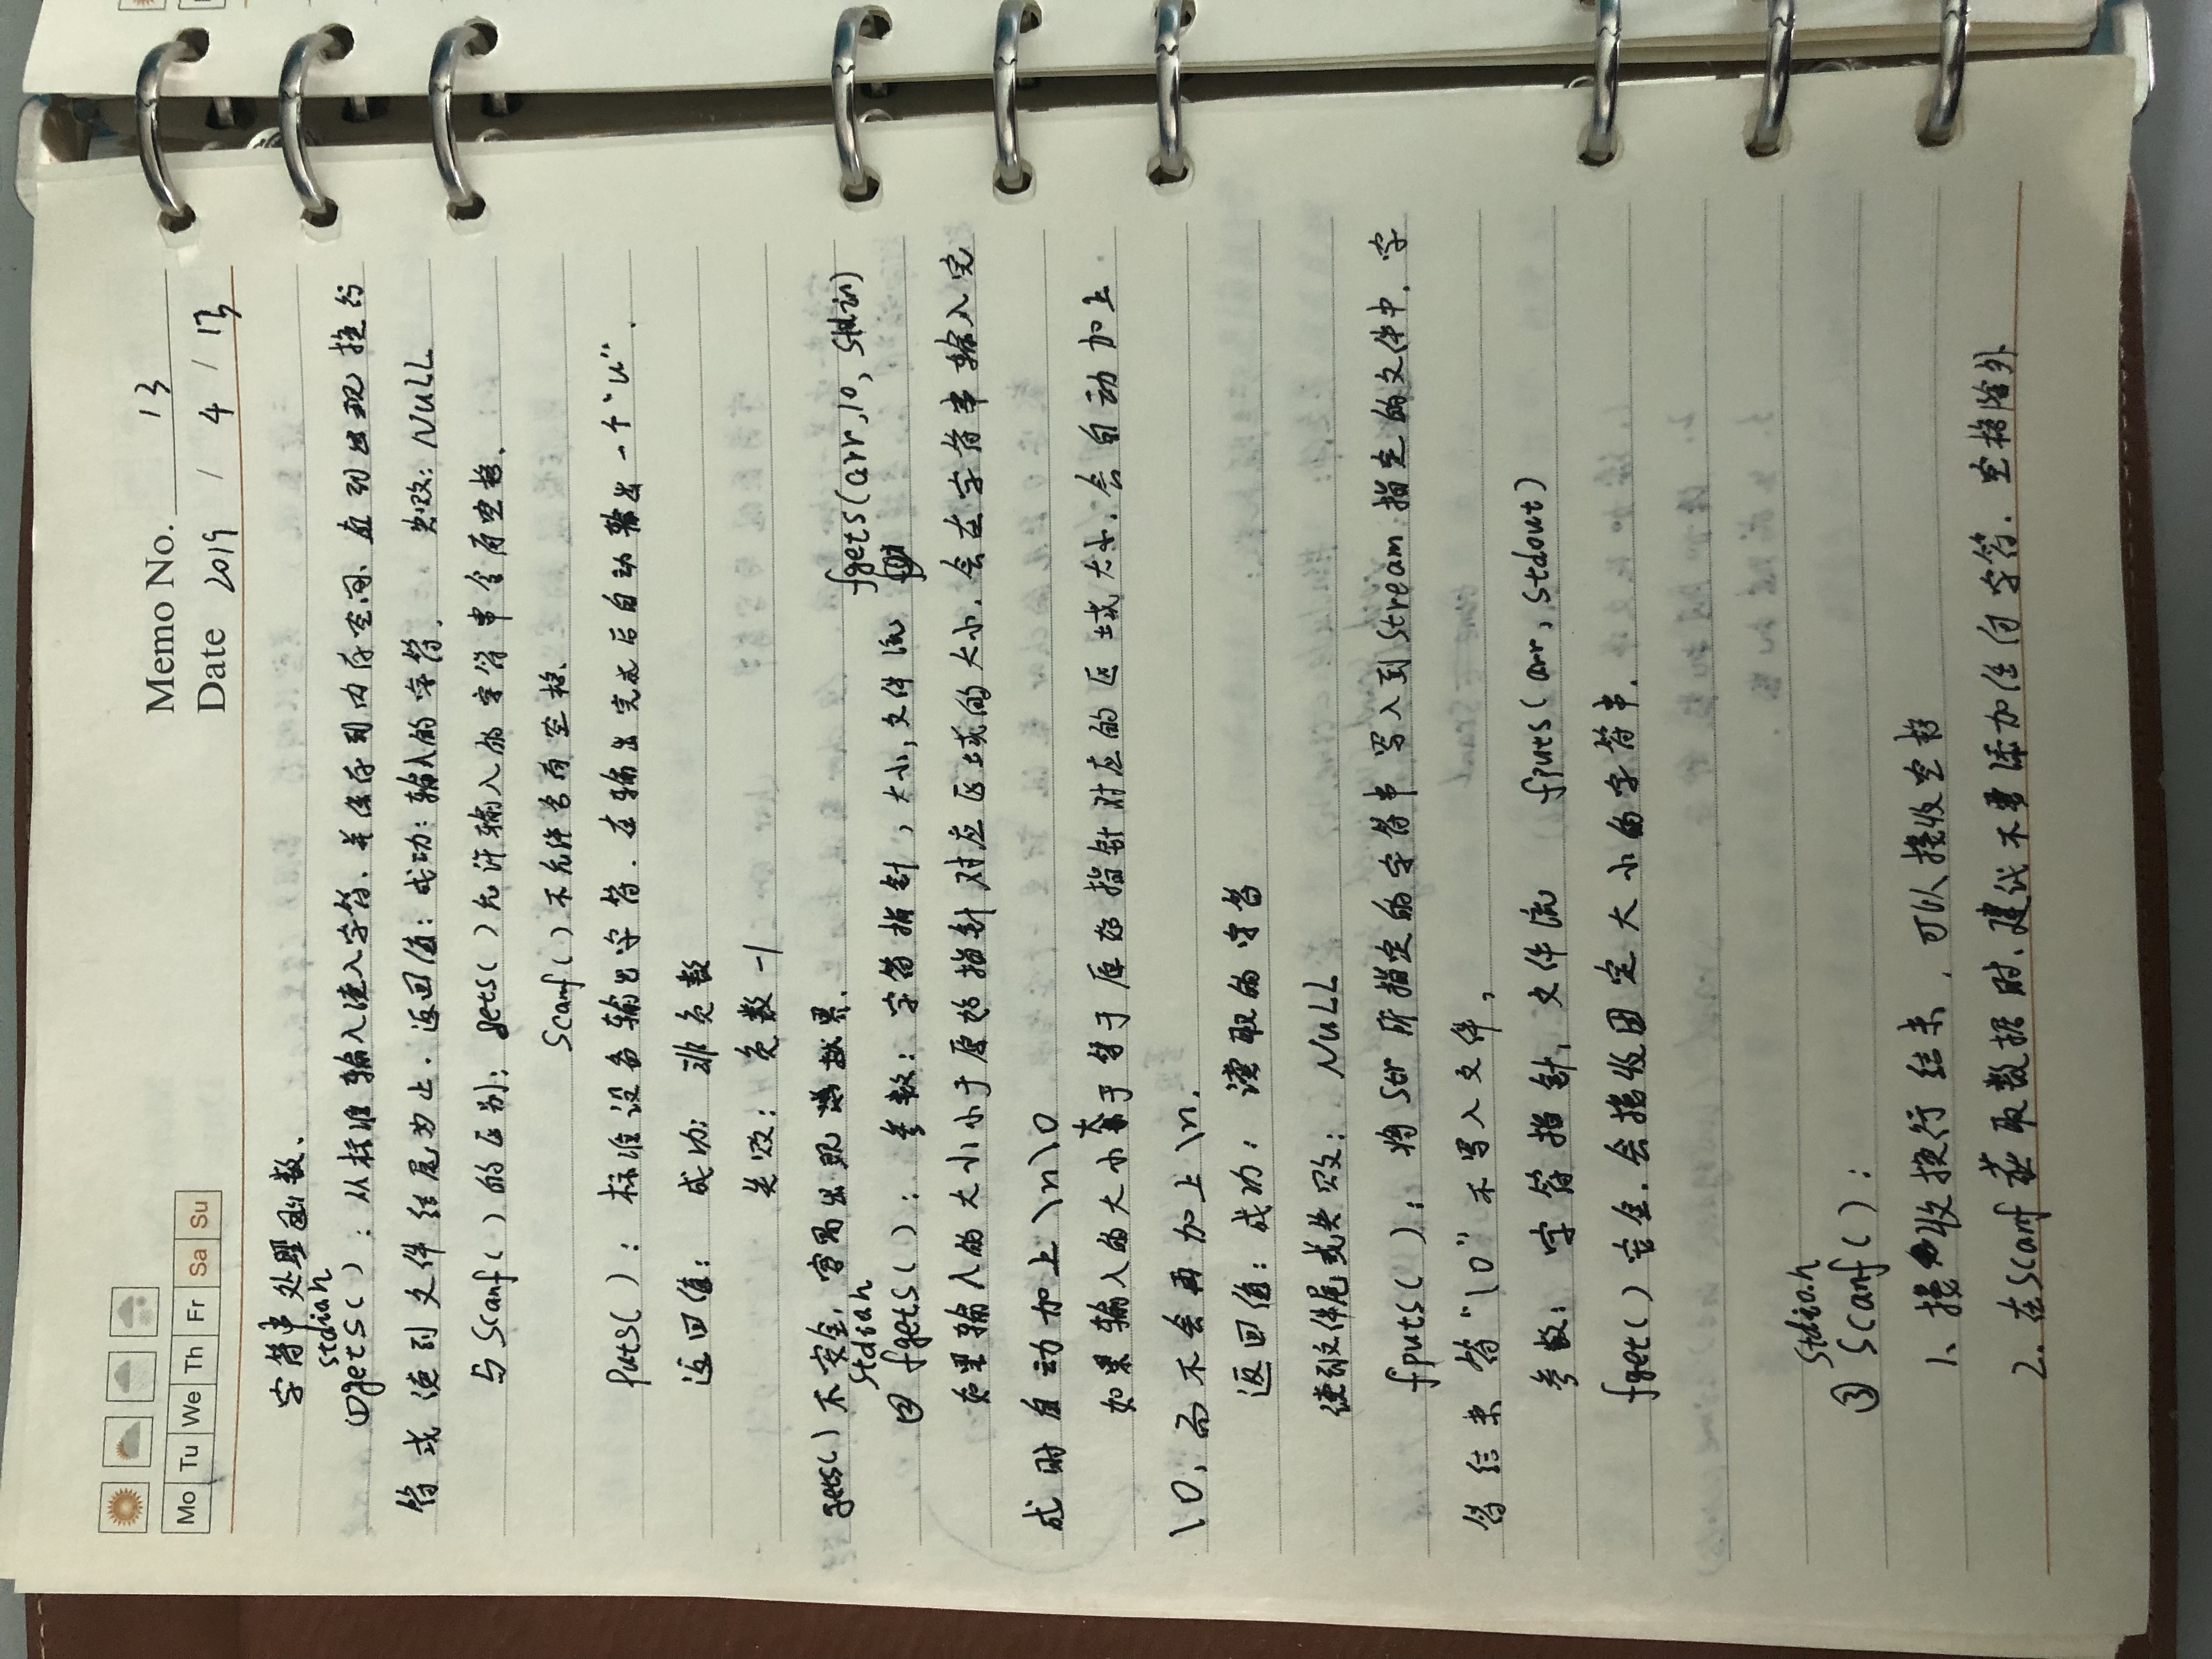 Memo No. 13
Mo Tu We Th Fr Sa Su
Date 2019 / 4 / 13
字符串处理函数、
stdio.h
①gets()：从标准输入读入字符、并保存到内存空间、直到出现换行
符或读到文件结尾为止．返回值：成功：输入的字符． 失败：NULL
与Scanf()的区别：gets()允许输入的字符串含有空格．
Scanf()不允许含有空格．
puts()：标准设备输出字符．在输出完成后自动输出一个"\n"．
返回值： 成功： 非负数
失败： 负数 -1
gets()不安全，容易出现越界． fgets(arr,10, stdin)
stdio.h
② fgets()：参数：字符指针，大小，文件流
如果输入的大小小于原始指针对应区域的大小．会在字符串输入完
成时自动加上\n\0
如果输入的大小大于等于原始指针对应的区域大小．会自动加上
\0，而不会再加上\n．
返回值：成功：读取的字符
读到文件尾或失败：NULL
fputs()：将str所指定的字符串写入到stream指定的文件中．字
符结束符"\0"不写入文件，
参数：字符指针，文件流 fputs(arr, stdout)
fget()安全．会接收固定大小的字符串．
stdio.h
③ Scanf()：
1、接收换行结束，可以接收空格
2、在scanf获取数据时、建议不要添加任何字符．空格除外